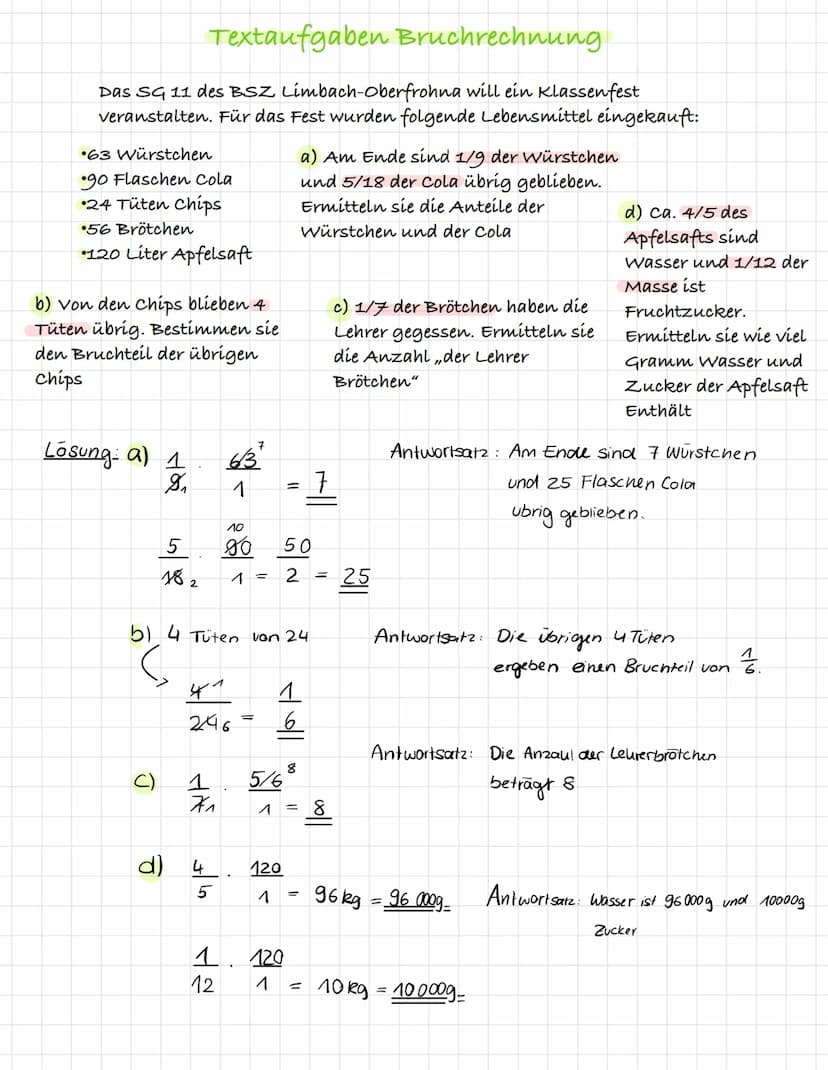 Textaufgaben Bruchrechnung
Das SG 11 des BSZ Limbach-Oberfrohna will ein Klassenfest
veranstalten. Für das Fest wurden folgende Lebensmittel eingekauft:
•63 Würstchen
•90 Flaschen Cola
•24 Tüten Chips
•56 Brötchen
•120 Liter Apfelsaft
a) Am Ende sind 1/9 der Würstchen
und 5/18 der Cola übrig geblieben.
Ermitteln sie die Anteile der
Würstchen und der Cola
b) Von den Chips blieben 4
Tüten übrig. Bestimmen sie
den Bruchteil der übrigen
Chips
c) 1/7 der Brötchen haben die
Lehrer gegessen. Ermitteln sie
die Anzahl „der Lehrer
Brötchen“
d) Ca. 4/5 des
Apfelsafts sind
Wasser und 1/12 der
Masse ist
Fruchtzucker.
Ermitteln sie wie viel
Gramm Wasser und
Zucker der Apfelsaft
Enthält
Lösung: a) 1/9 1 · 63 7/1 = 7
Antwortsatz: Am Ende sind 7 Würstchen
und 25 Flaschen Cola
übrig geblieben.
5/18 2 · 90 10/1 = 50/2 = 25
b) 4 Tüten von 24
4 1/24 6 = 1/6
Antwortsatz: Die übrigen 4 Tüten
ergeben einen Bruchteil von 1/6.
c) 1/7 1 · 56 8/1 = 8
Antwortsatz: Die Anzahl der Lehrerbrötchen
beträgt 8
d) 4/5 · 120/1 = 96 kg = 96 000g
Antwortsatz: Wasser ist 96 000 g und 10000g
Zucker
1/12 · 120/1 = 10 kg = 10 000g